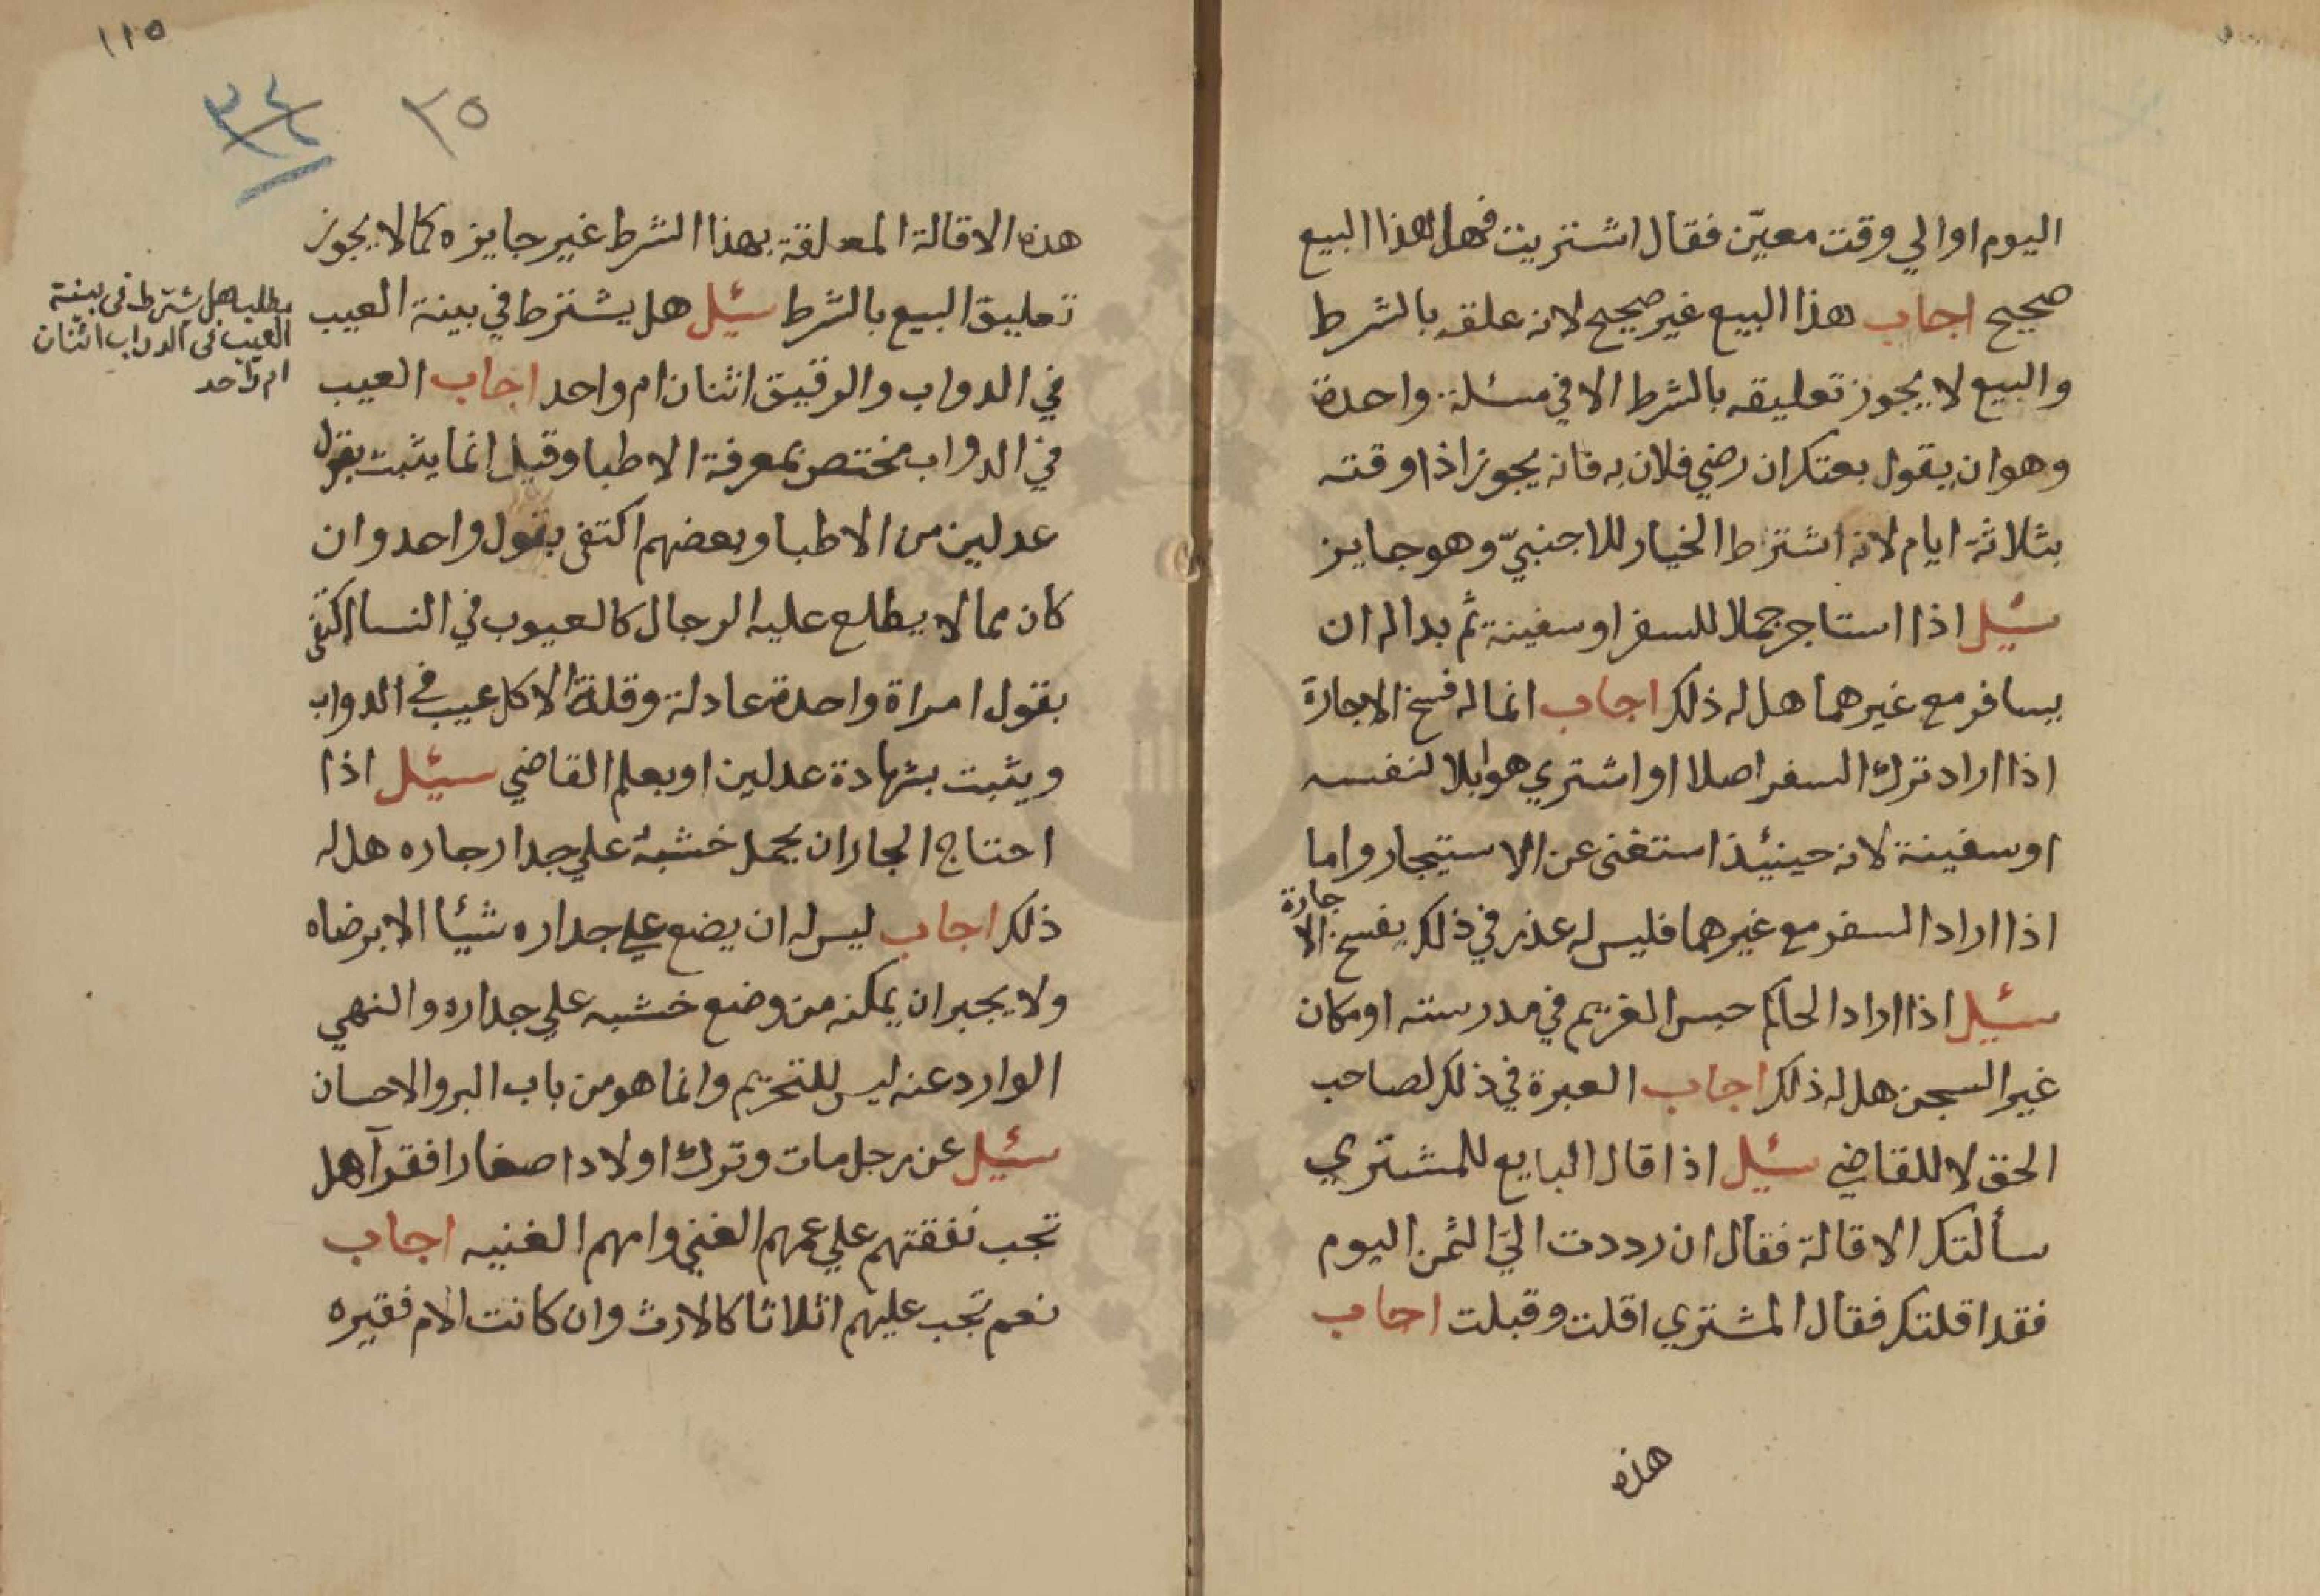 اليوم او الي وقت معيّن فقال اشتريت فهل هذا البيع
صحيح اجاب هذا البيع غير صحيح لانه علقه بالشرط
والبيع لا يجوز تعليقه بالشرط الا في مسئلة واحدة
وهو ان يقول بعتك ان رضي فلان به فانه يجوز اذا وقته
بثلاثة ايام لانه اشترط الخيار للاجنبيّ وهو جايز
سئيل اذا استاجر جملا للسفر او سفينة ثم بدا له ان
يسافر مع غيرهما هل له ذلك اجاب انما له فسخ الاجارة
اذا اراد ترك السفر اصلا او اشتري هو ابلا لنفسه
او سفينة لانه حينئيذ استغنى عن الاستيجار واما
اذا اراد السفر مع غيرهما فليس له عذر في ذلك يفسخ الاجارة
سئيل اذا اراد الحاكم حبس الغريم في مدرسته او مكان
غير السجن هل له ذلك اجاب العبرة في ذلك لصاحب
الحق لا للقاضي سئيل اذا قال البايع للمشتري
سألتك الاقالة فقال ان رددت اليّ الثمن اليوم
فقد اقلتك فقال المشتري اقلت وقبلت اجاب
هذه
١١٥
٣٥
هذه الاقالة المعلقة بهذا الشرط غير جايزه كما لا يجوز
تعليق البيع بالشرط سئيل هل يشترط في بينة العيب
في الدواب والرقيق اثنان ام واحد اجاب العيب
في الدواب مختص بمعرفة الاطبا وقيل انما يثبت بقول
عدلين من الاطبا وبعضهم اكتفى بقول واحد وان
كان مما لا يطلع عليه الرجال كالعيوب في النسا اكتفى
بقول امراة واحدة عادلة وقلة الاكل عيب في الدواب
ويثبت بشهادة عدلين او بعلم القاضي سيئل اذا
احتاج الجار ان يحمل خشبة علي جدار جاره هل له
ذلك اجاب ليس له ان يضع علي جداره شيئا الا برضاه
ولا يجبر ان يمكنه من وضع خشبه علي جداره والنهي
الوارد عنه ليس للتحريم وانما هو من باب البر والاحسان
سئيل عن رجل مات وترك اولادا صغارا فقرآ هل
تجب نفقتهم علي عمهم الغني وامهم الغنيه اجاب
نعم تجب عليهم اثلاثا كالارث وان كانت الام فقيره
مطلب هل يشترط في بينة
العيب في الدواب اثنان
ام واحد